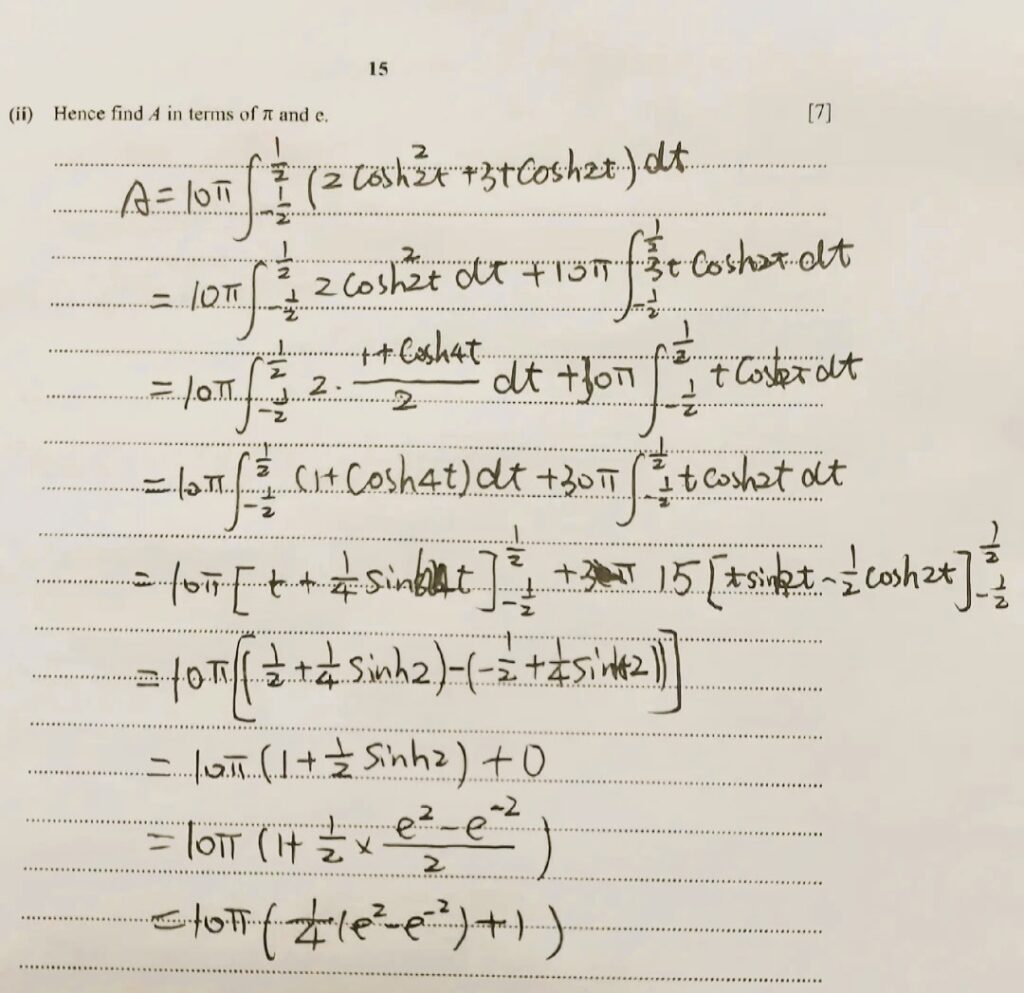 15
(ii) Hence find A in terms of π and e. [7]
A = 10π ∫_{-1/2}^{1/2} (2 cosh²2t + 3t cosh2t) dt
= 10π ∫_{-1/2}^{1/2} 2 cosh²2t dt + 10π ∫_{-1/2}^{1/2} 3t cosh2t dt
= 10π ∫_{-1/2}^{1/2} 2 · (1 + cosh4t)/2 dt + 30π ∫_{-1/2}^{1/2} t cosh2t dt
= 10π ∫_{-1/2}^{1/2} (1 + cosh4t) dt + 30π ∫_{-1/2}^{1/2} t cosh2t dt
= 10π [t + 1/4 sinh4t]_{-1/2}^{1/2} + 15 [t sinh2t - 1/2 cosh2t]_{-1/2}^{1/2}
= 10π [(1/2 + 1/4 sinh2) - (-1/2 + 1/4 sinh-2)]
= 10π (1 + 1/2 sinh2) + 0
= 10π (1 + 1/2 × (e² - e⁻²)/2)
= 10π (1/4 (e² - e⁻²) + 1)